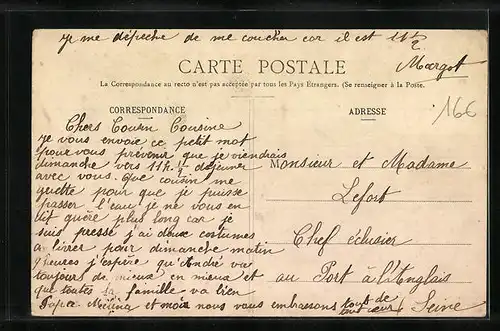 je me dépeche de me coucher car il est 11h ½
Margot
CARTE POSTALE
La Correspondance au recto n'est pas acceptée par tous les Pays Etrangers. (Se renseigner à la Poste.
CORRESPONDANCE
Chers Cousin Cousine
je vous envoie ce petit mot
pour vous prévenir que je viendrais
dimanche vers 11h ½ déjeuner
avec vous. Que cousin me
guette pour que je puisse
passer l'eau je ne vous en
dit guère plus long car je
suis pressé j'ai deux costumes
a livrer pour dimanche matin
9 heures j'espère qu'André vas
toujours de mieux en mieux et
que toutes la famille va bien
Papa et moi nous vous embrassons tous de
tout cœur
ADRESSE
166
Monsieur et Madame
Lefort
Chef éclusier
au Port à l'Anglais
Seine